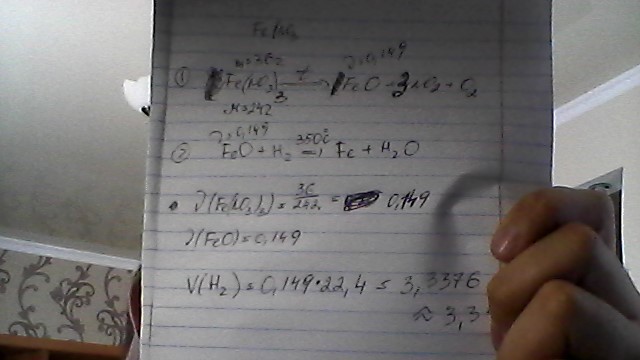 m=36г ν=0,149
① Fe(NO3)3 t→ FeO + 3NO2 + O2
M=242
ν=0,149
② FeO + H2 350°C → Fe + H2O
• ν(Fe(NO3)3) = 36/242 = 0,149
ν(FeO) = 0,149
V(H2) = 0,149·22,4 = 3,3376
≈ 3,3